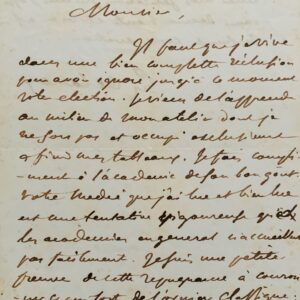 Monsieur,
Il faut que j'aie vécu
dans une bien complette réclusion
pour avoir ignoré jusqu'à ce moment
votre election. Je viens de l'apprendre
au milieu de mon atelier dont je
ne sors pas et occupé exclusivement
à finir mes tableaux. Je fais compli-
ment à l'académie de son bon gout.
votre que j'ai lue et bien lue
est une tentative vigoureuse que
les académies en general n'accueillent
pas facilement. une petite
preuve de cette repugnance à couronner
classique